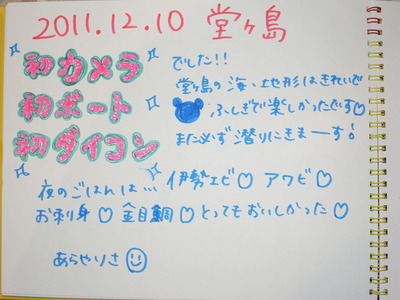 2011.12.10 堂ヶ島
初カメラ
初ボート
初ダイコン
でした!!
堂ヶ島の海、地形はきれいで
ふしぎで楽しかったです♡
また必ず潜りにきまーす!
夜のごはんは… 伊勢エビ♡ アワビ♡
お刺身♡ 金目鯛♡とってもおいしかった♡
あらやりさ